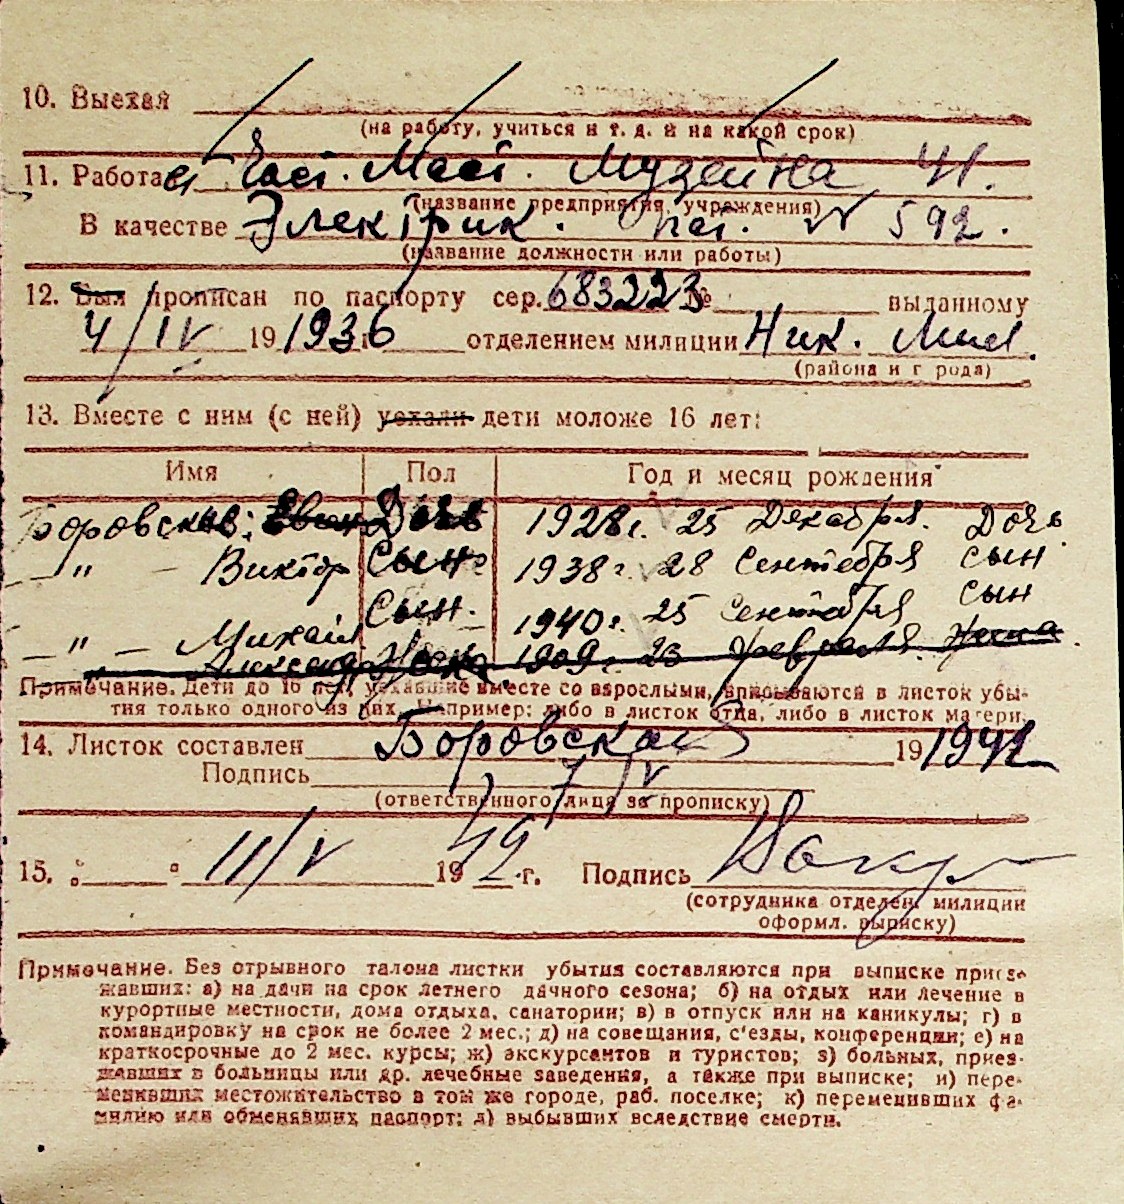 10. Выехал
(на работу, учиться и т. д. и на какой срок)
11. Работает Част. Маст. Музейна 41.
(название предприятия, учреждения)
В качестве Электрик. пат. № 592.
(название должности или работы)
12. Был прописан по паспорту сер. 683223 № выданному
4/IV 19 1936 г. отделением милиции Ник. Мил.
(района и города)
13. Вместе с ним (с ней) уехали дети моложе 16 лет:
Имя Пол Год и месяц рождения
Боровский: Дочь 1928 г. 25 Декабря. Дочь
— " — Виктор Сын 1938 г. 28 Сентября сын
— " — Михаил Сын. 1940 г. 25 Сентября сын
" Александр Жена 1909 г. 23 февраля. Жена
Примечание. Дети до 16 лет, уехавшие вместе со взрослыми, вписываются в листок убы-
тия только одного из них. Например: либо в листок отца, либо в листок матери.
14. Листок составлен Боровской 19 1942
Подпись 7/V
(ответственного лица за прописку)
15. „ " 11/V 19 42 г. Подпись
(сотрудника отделен. милиции
оформл. выписку)
Примечание. Без отрывного талона листки убытия составляются при выписке приез-
жавших: а) на дачи на срок летнего дачного сезона; б) на отдых или лечение в
курортные местности, дома отдыха, санатории; в) в отпуск или на каникулы; г) в
командировку на срок не более 2 мес.; д) на совещания, с'езды, конференции; е) на
краткосрочные до 2 мес. курсы; ж) экскурсантов и туристов; з) больных, приез-
жавших в больницы или др. лечебные заведения, а также при выписке; и) пере-
менивших местожительство в том же городе, раб. поселке; к) переменивших фа-
милию или обменявших паспорт; л) выбывших вследствие смерти.